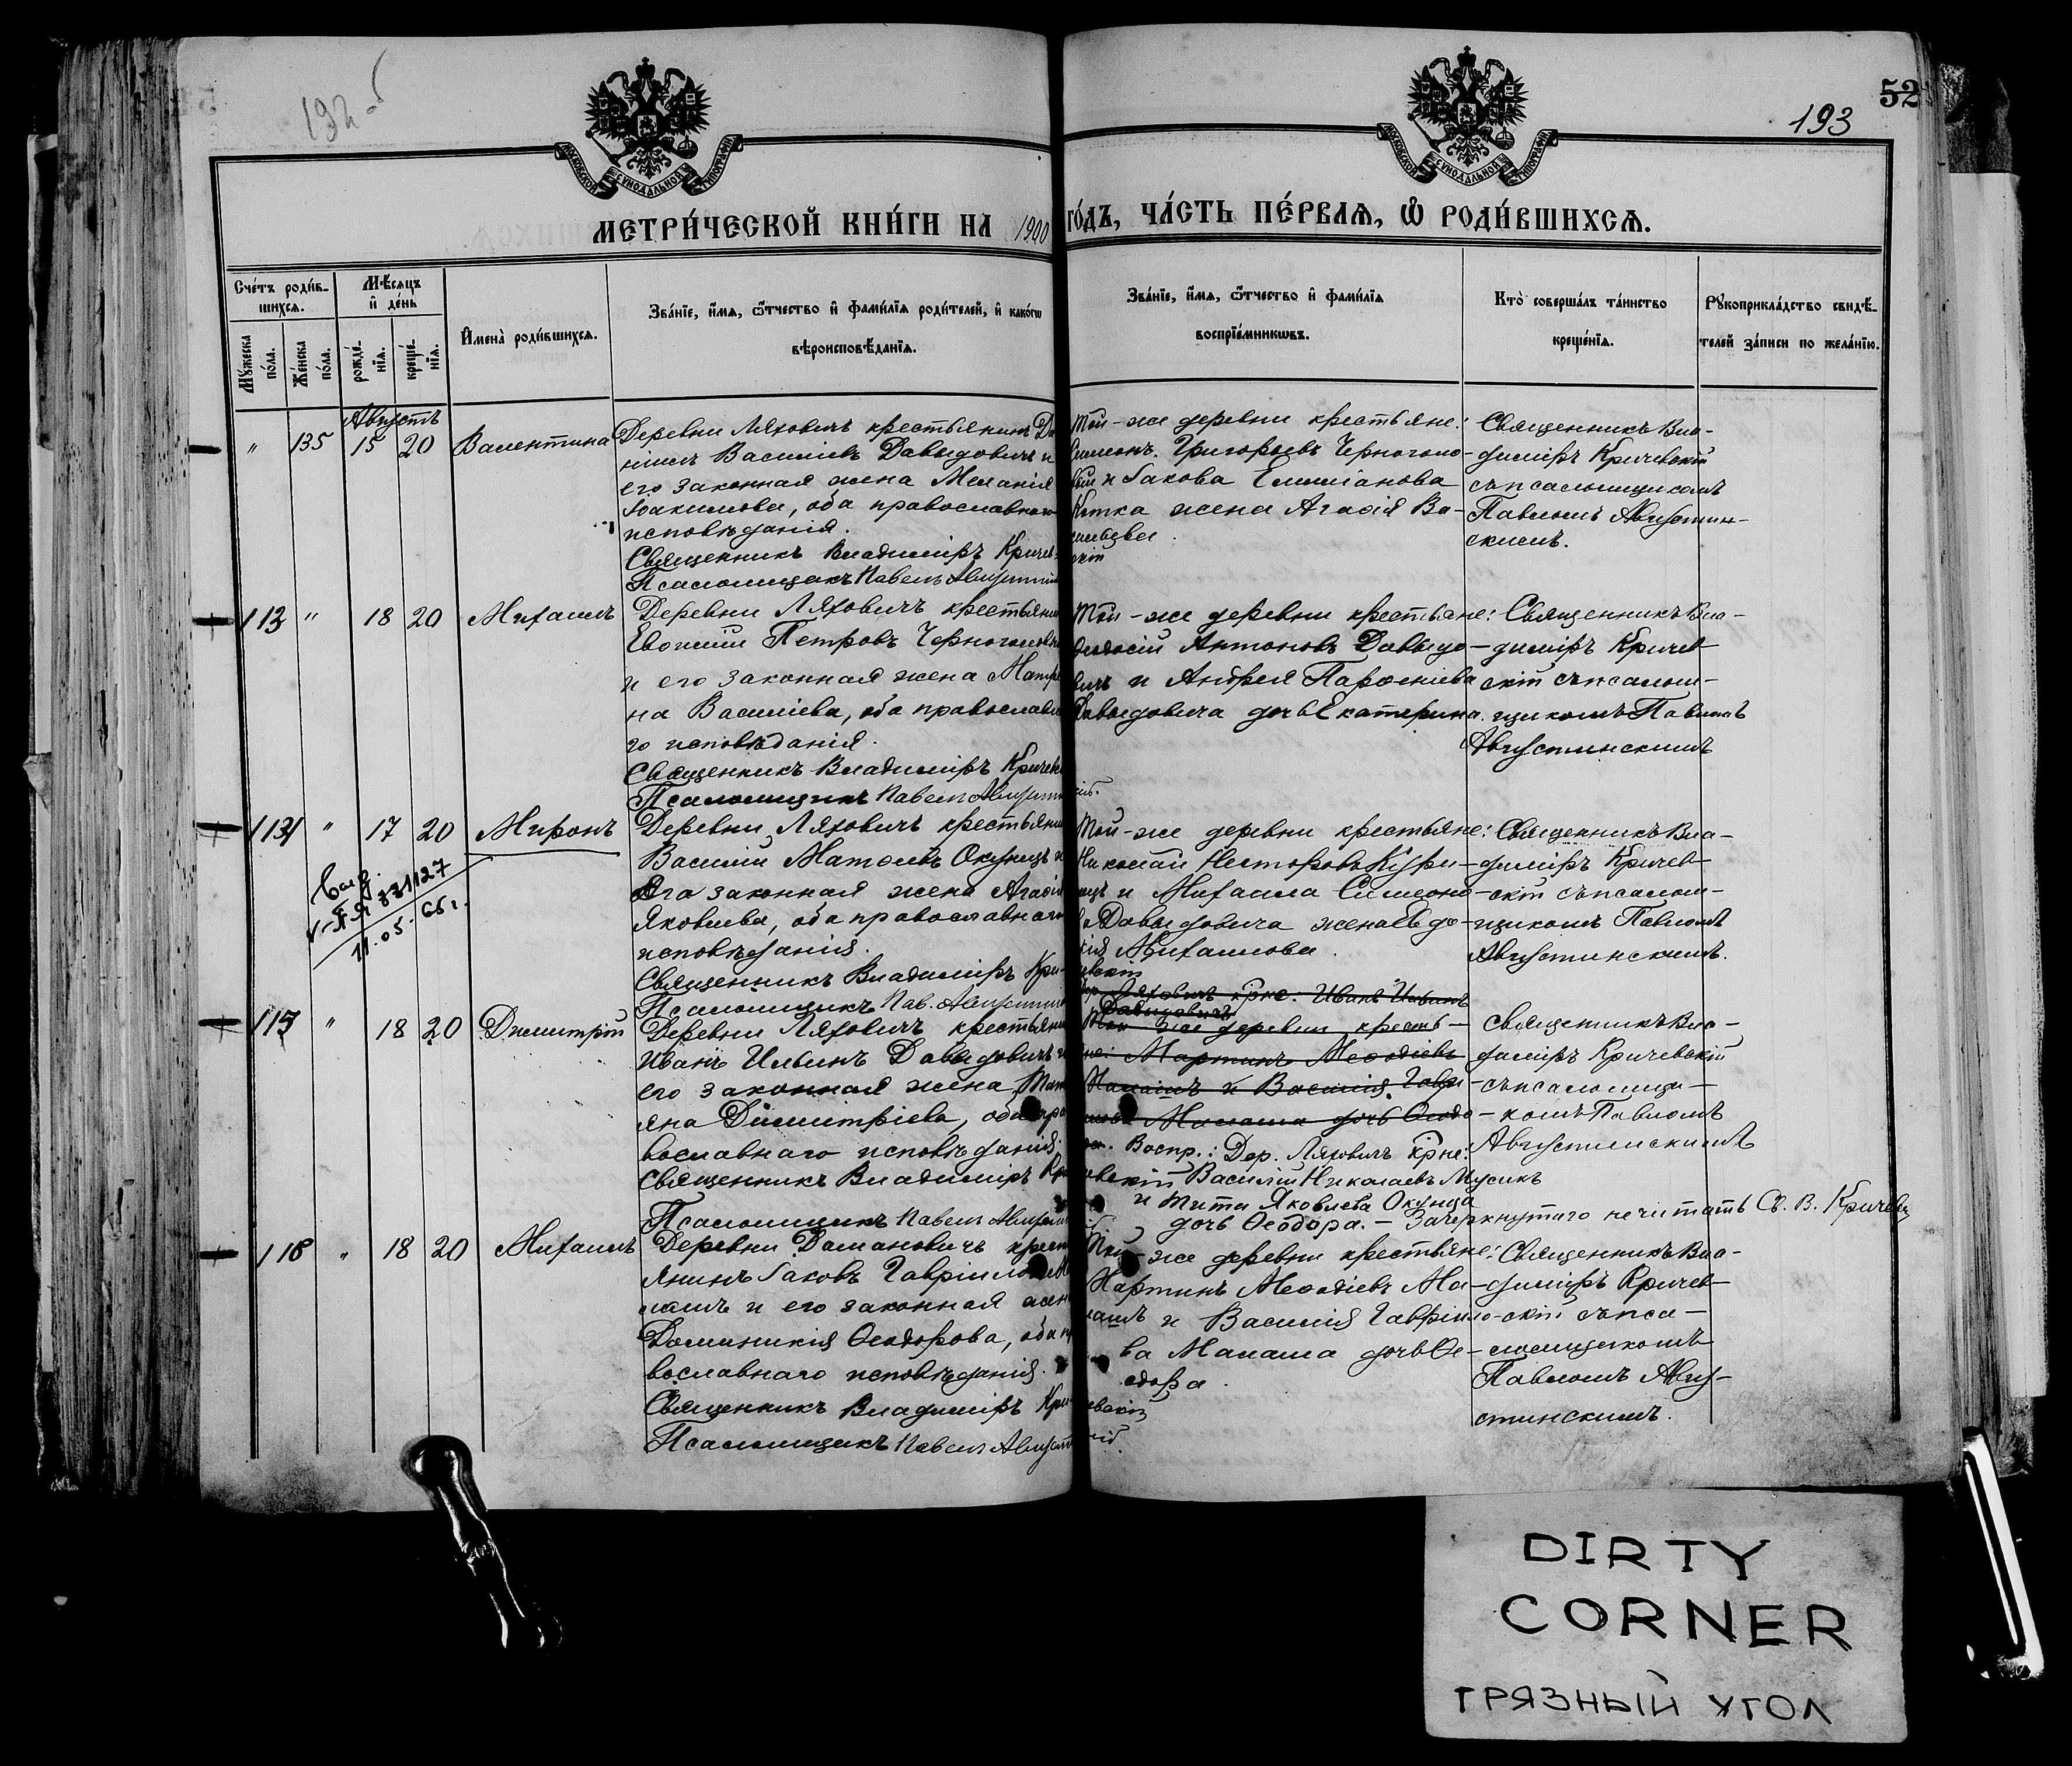 192 об
52
193
МОСКОВСКОЙ СѴНОДАЛЬНОЙ ТИПОГРАФІИ
МОСКОВСКОЙ СѴНОДАЛЬНОЙ ТИПОГРАФІИ
МЕТРИ́ЧЕСКОЙ КНИ́ГИ НА 1900 ГО́ДЪ, ЧА́СТЬ ПЕ́РВАѦ, Ѿ РОДИ́ВШИХСѦ.
Сче́тъ роди́в-
шихсѧ.
Мꙋ́жеска по́ла.
Же́нска по́ла.
Мѣ́сѧцъ и҆ де́нь
рожде́-нїѧ.
креще́-нїѧ.
И҆мена̀ роди́вшихсѧ.
Зва́нїе, и҆́мѧ, ѻ҆́тчество и҆ фами́лїѧ роди́телей, и҆ како́гѡ
вѣроисповѣ́данїѧ.
Зва́нїе, и҆́мѧ, ѻ҆́тчество и҆ фами́лїѧ
воспрїе́мникѡвъ.
Кто̀ соверша́лъ та́инство
креще́нїѧ.
Рꙋкоприкла́дство свидѣ́-
телей за́писи по жела́нїю.
Августъ
" 135 15 20 Валентина
Деревни Ляховичъ крестьянинъ Да
ніилъ Василіевъ Давыдовичъ и
его законная жена Меланія
Іоакимова, оба православнаго
исповѣданія.
Священникъ Владиміръ Кричев-
скій
Псаломщикъ Павелъ Августин
Той-же деревни крестьяне:
Симеонъ Григорьевъ Черноголо-
вый и Іакова Емиліанова
Котка жена Агафія Ва-
сильева.
Священникъ Вла-
диміръ Кричевскій
съ псаломщикомъ
Павломъ Августин-
скимъ.
113 " 18 20 Михаилъ
Деревни Ляховичъ крестьянин
Евфимій Петровъ Черноголов
и его законная жена Матре
на Василіева, оба православна
го исповѣданія.
Священникъ Владиміръ Кричевс
Псаломщикъ Павелъ Августин
Той-же деревни крестьяне:
Ѳеодосій Антоновъ Давыдо-
вичъ и Андрея Парѳеніева
Давыдовича дочь Екатерина.
Священникъ Вла-
диміръ Кричев-
скій съ псалом-
щикомъ Павломъ
Августинскимъ
114 " 17 20 Миронъ
331127
11.05.65г.
Деревни Ляховичъ крестьянин
Василій Матѳіевъ Окунецъ и
его законная жена Агафія
Яковлева, оба православнаго
исповѣданія.
Священникъ Владиміръ Кри-
чевскій
Псаломщикъ Пав. Августин
Той-же деревни крестьяне:
Николай Несторовъ Кури-
нецъ и Михаила Симеоно-
ва Давыдовича жена Евдо-
кія Михаилова.
Священникъ Вла-
диміръ Кричев-
скій съ псалом-
щикомъ Павломъ
Августинскимъ.
115 " 18 20 Димитрій
Деревни Ляховичъ крестьянин
Иванъ Ильинъ Давыдовичъ и
его законная жена Тать
яна Димитріева, оба пра
вославнаго исповѣданія.
Священникъ Владиміръ Кри
чевскій
Псаломщикъ Павелъ Августин
дер. Ляховичъ крне: Иванъ Ильинъ
Давидовичъ
Той же деревни кресть-
яне: Мартинъ Меѳодіевъ
Малашъ и Василія Гаври-
лова Малаша дочь Ѳеодо-
ра. Воспр.: Дер. Ляховичъ крне:
Василій Николаевъ Мусикъ
и Тита Яковлева Окунца
дочь Ѳеодора. – Зачеркнутаго не читать Св. В. Кричевск
Священникъ Вла-
диміръ Кричевскій
съ псаломщи-
комъ Павломъ
Августинскимъ
116 " 18 20 Михаилъ
Деревни Домановичъ крест
янинъ Іаковъ Гавріиловъ Ма
лашъ и его законная жен
Доминикія Ѳеодорова, оба пр
вославнаго исповѣданія.
Священникъ Владиміръ Кри
чевскій
Псаломщикъ Павелъ Августин
Той-же деревни крестьяне:
Мартинъ Меѳодіевъ Ма-
лашъ и Василія Гавріило-
ва Малаша дочь Ѳе-
одора.
Священникъ Вла-
диміръ Кричев-
скій съ пса-
ломщикомъ
Павломъ Авгу-
стинскимъ.
DIRTY
CORNER
ГРЯЗНЫЙ УГОЛ